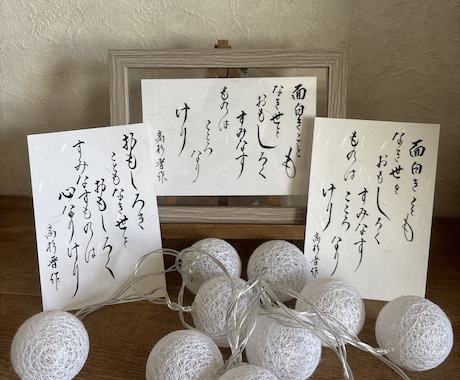 おもしろき
こともなき世を
おもしろく
すみなすものは
心なりけり
高杉晋作
面白きことも
なき世を
おもしろく
すみなす
ものは
こころなり
けり
高杉晋作
面白きことも
なき世を
おもしろく
すみなす
ものは
こころなり
けり
高杉晋作